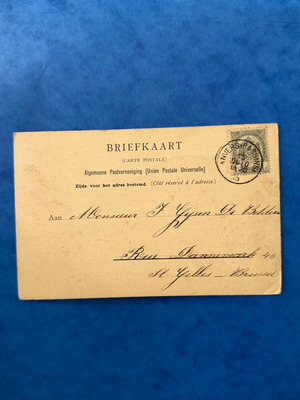 BRIEFKAART
(CARTE POSTALE)
Algemeene Postvereeniging [Union Postale Universelle]
Zijde voor het adres bestemd. (Côté réservé à l'adresse.)
Aan Monsieur J Gysen De
Rue Dannemark 46
St Gilles - Brussel